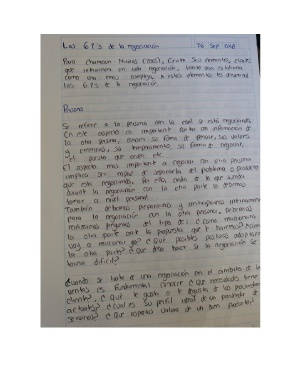 Las 6 P's de la negociación
Para Chamoun Nicolás (2003), Existen Seis elementos claves
que intervienen en cada negociación,
como una area compleja, a estos elementos les denominó
las 6 P's de la negociación
Persona
Se refiere a la persona con la cual se está negociando.
En este aspecto es importante contar con información de
la otra persona, conocer su forma de pensar, sus valores
y creencias, su temperamento, su forma de negociar,
el puesto que ocupa etc.
El aspecto más importante a negociar con otra persona
implica ser capaz de separarla del problema o producto
que esta negociando. Por ello, nada de lo que suceda
durante la negociación con la otra parte lo debemos
tomar a nivel personal.
También debemos prepararnos y anticiparnos internamente
para la negociación con la otra persona, debemos
realizarnos preguntas del tipo de: ¿Cómo reaccionaría
la otra parte ante la propuesta que le haremos? ¿Cómo
voy a reaccionar yo? ¿Qué posibles posturas adoptaremos
la otra parte? ¿Qué debo hacer si la negociación se
torna difícil?
Cuando se trate de una negociación en el ámbito de las
ventas es fundamental conocer ¿Qué necesidades tiene el
cliente?, ¿Qué le gusta o le disgusta de los proveedores
actuales? ¿Cuál es su perfil ideal de un proveedor de
servicios? ¿Qué aspectos valora de un buen proveedor?